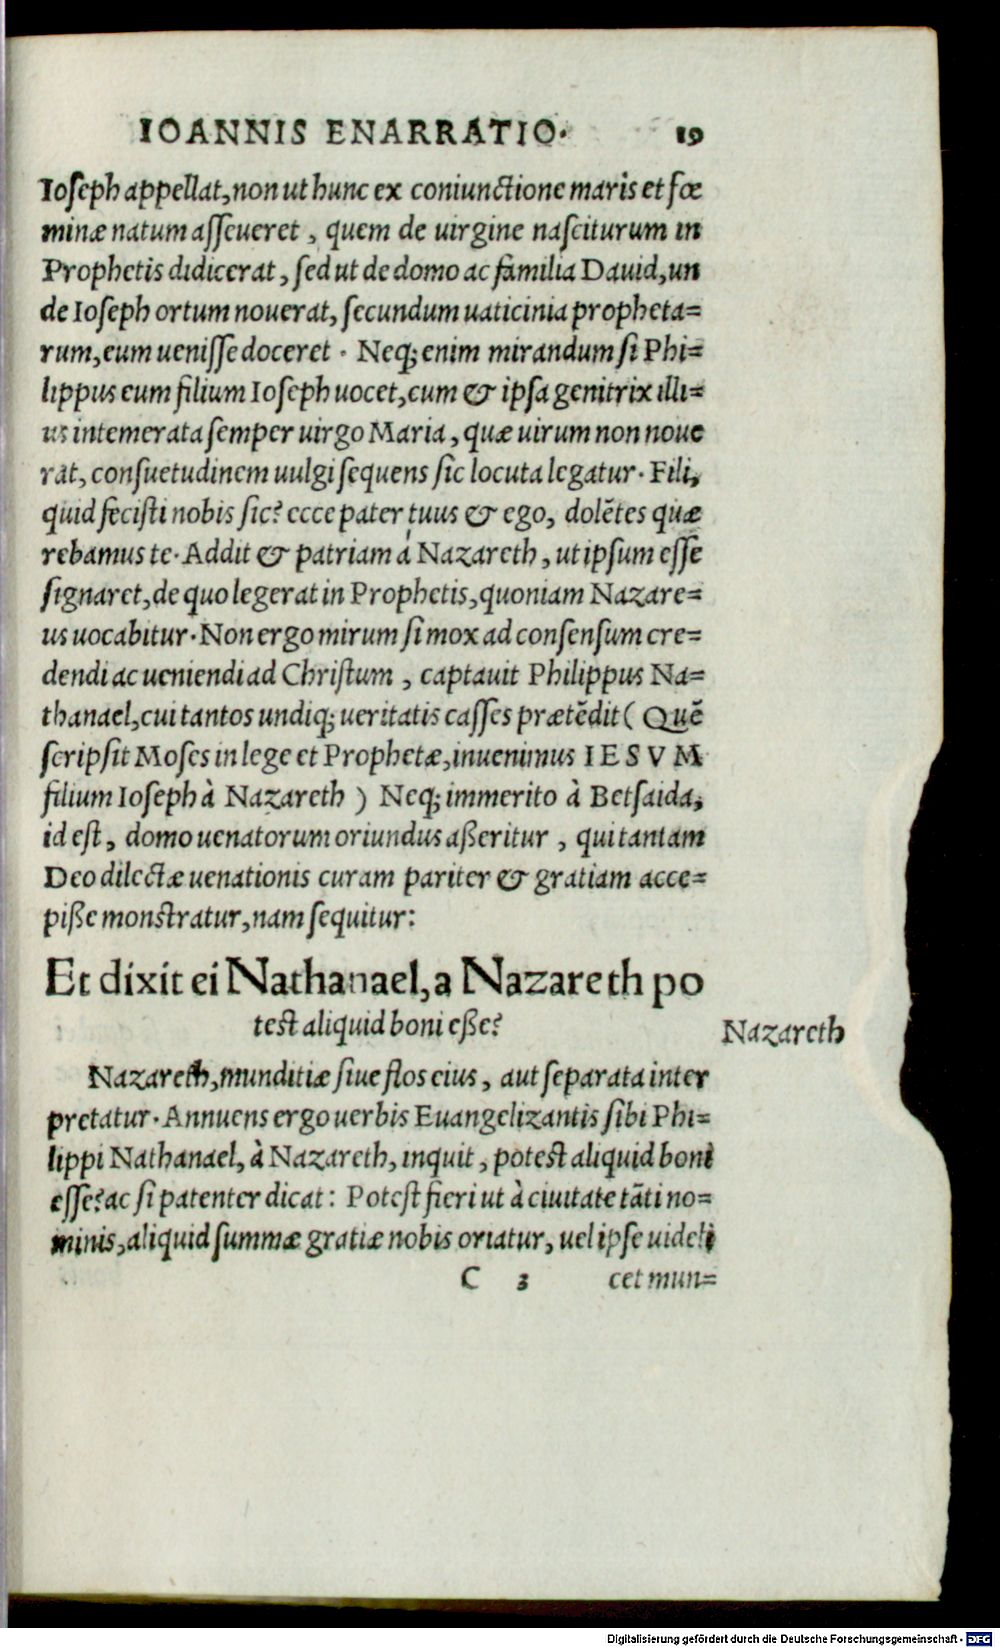 IOANNIS ENARRATIO. 19
Ioseph appellat, non ut hunc ex coniunctione maris et fœ
minæ natum asseueret, quem de uirgine nasciturum in
Prophetis didicerat, sed ut de domo ac familia Dauid, un
de Ioseph ortum nouerat, secundum uaticinia propheta=
rum, eum uenisse doceret. Neq; enim mirandum si Phi=
lippus eum filium Ioseph uocet, cum & ipsa genitrix illi=
us intemerata semper uirgo Maria, quæ uirum non noue
rat, consuetudinem uulgi sequens sic locuta legatur. Fili,
quid fecisti nobis sic? ecce pater tuus & ego, dolẽtes quæ
rebamus te. Addit & patriam á Nazareth, ut ipsum esse
signaret, de quo legerat in Prophetis, quoniam Nazare=
us uocabitur. Non ergo mirum si mox ad consensum cre=
dendi ac ueniendi ad Christum, captauit Philippus Na=
thanael, cui tantos undiq; ueritatis casses prætẽdit ( Quẽ
scripsit Moses in lege et Prophetæ, inuenimus IESVM
filium Ioseph à Nazareth ) Neq; immerito à Betsaida,
id est, domo uenatorum oriundus aßeritur, qui tantam
Deo dilectæ uenationis curam pariter & gratiam acce=
piße monstratur, nam sequitur:
Et dixit ei Nathanael, a Nazareth po
test aliquid boni eße?
Nazareth
Nazareth, munditiæ siue flos eius, aut separata inter
pretatur. Annuens ergo uerbis Euangelizantis sibi Phi=
lippi Nathanael, à Nazareth, inquit, potest aliquid boni
esse? ac si patenter dicat: Potest fieri ut à ciuitate tãti no=
minis, aliquid summæ gratiæ nobis oriatur, uel ipse uideli
C 3 cet mun=
Digitalisierung gefördert durch die Deutsche Forschungsgemeinschaft - DFG